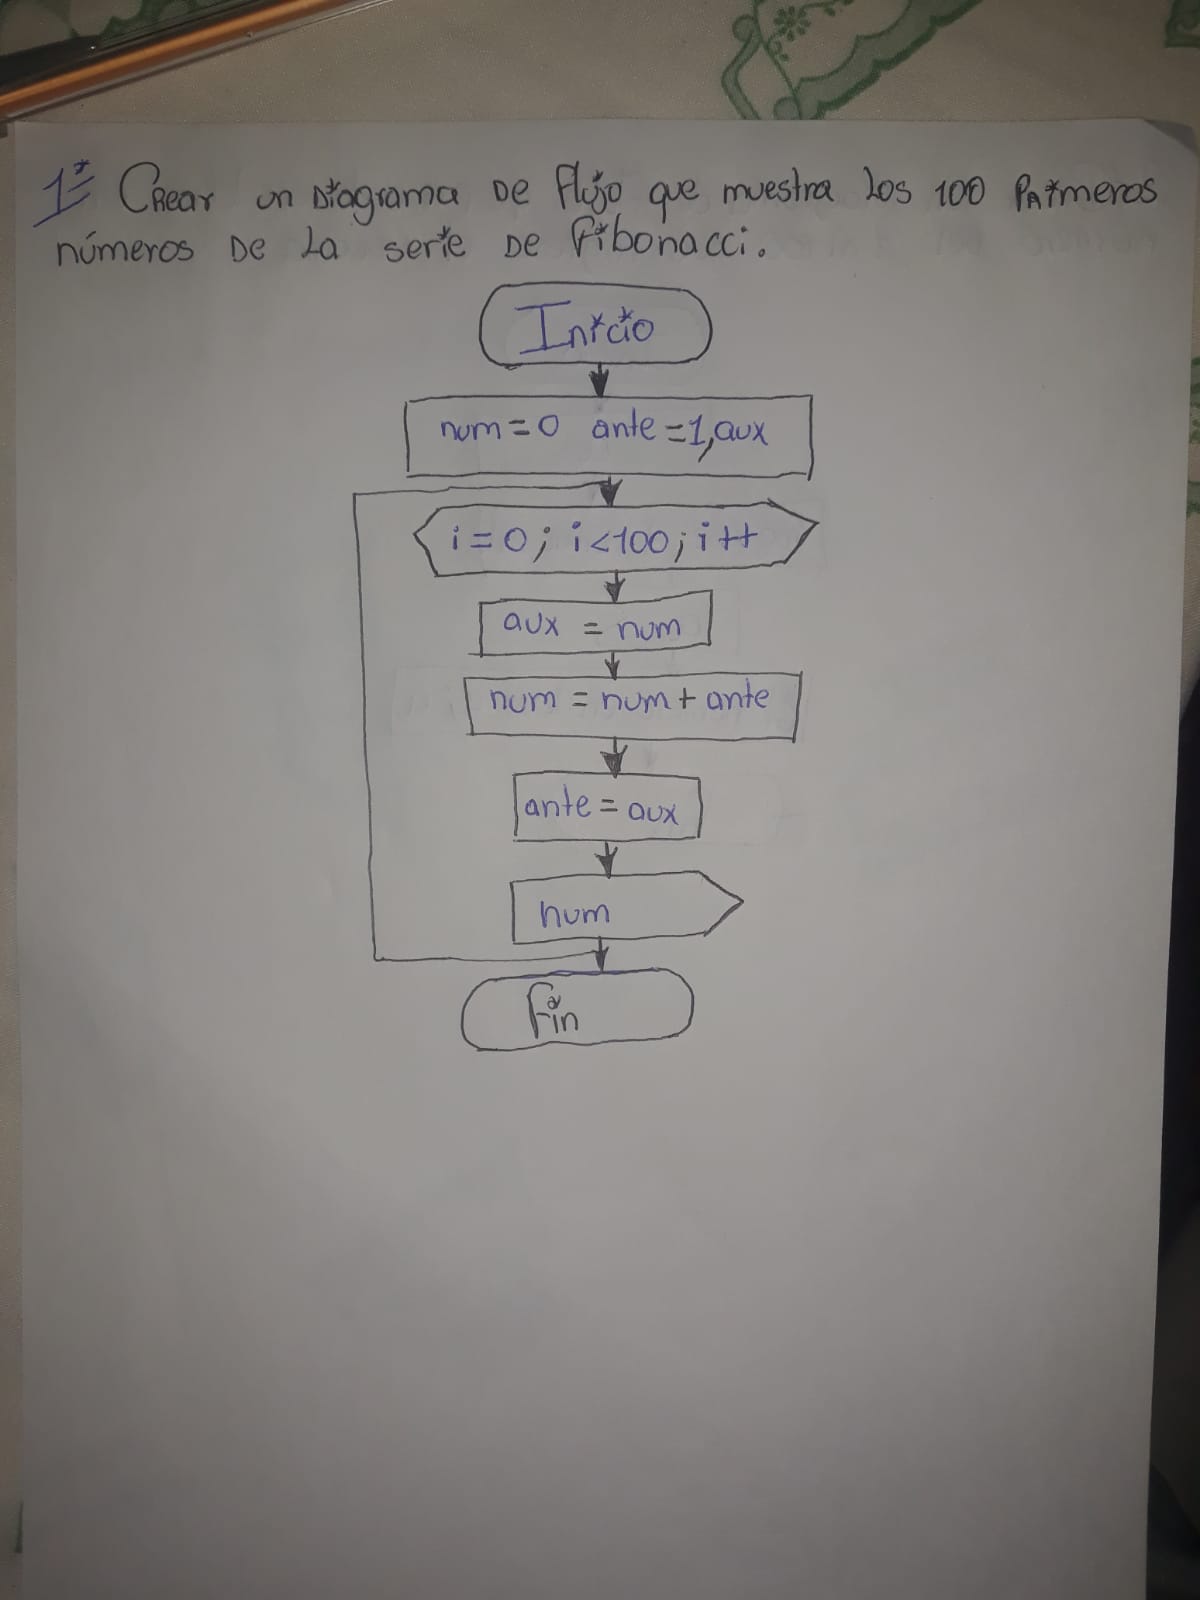 1= Crear un Diagrama De flujo que muestra los 100 Primeros
números De La serie De fibonacci.
Inicio
num=0 ante=1,aux
i=0; i<100; i++
aux = num
num = num + ante
ante = aux
num
fin